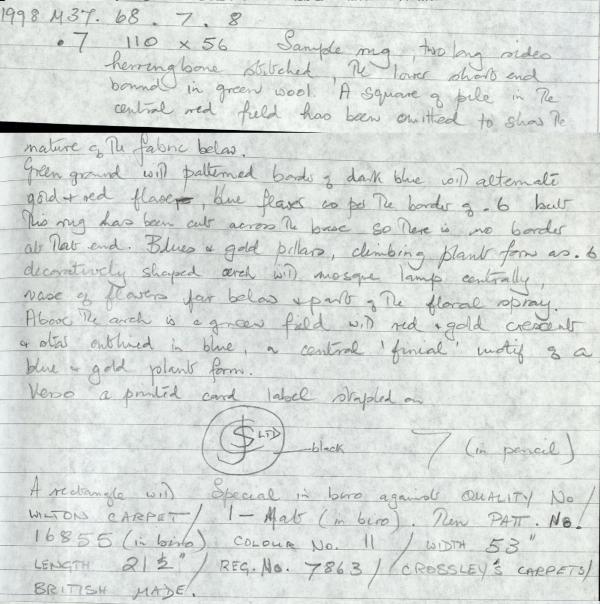 1998 M37. 68 . 7 . 8
.7 110 x 56 Sample rug, two long sides
herringbone stitched, The lower short end
bound in green wool. A square of pile in The
central red field has been omitted to show The
nature of The fabric below.
Green ground with patterned border of dark blue with alternate
gold + red flower, blue flowers as per The border of .6 but
This rug has been cut across The base so There is no border
at That end. Blue + gold pillars, climbing plant form as .6
decoratively shaped arch with mosque lamp centrally,
vase of flowers far below + part of The floral spray.
Above The arch is a green field with red + gold crescents
+ stars outlined in blue, a central 'finial' motif of a
blue + gold plant form.
Verso a printed card label stapled on
LTD
black 7 (in pencil)
A rectangle with Special in biro against QUALITY No /
WILTON CARPET / 1 - Mat (in biro). Then PATT. No.
16855 (in biro) COLOUR No. 11 / WIDTH 53"
LENGTH 21½" / REG. No. 7863 / CROSSLEY'S CARPETS /
BRITISH MADE.